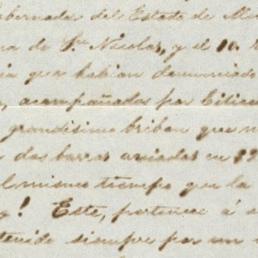 bernada del Estado de Mo
ra de Sn. Nicolas, y el 10. R
ia que habian denunciado
, acompañados por Cilicc
grandísimo bribon que n
dos barras aviadas en $3
l mismo tiempo que la
! Este, portence á
tenido siempre por un